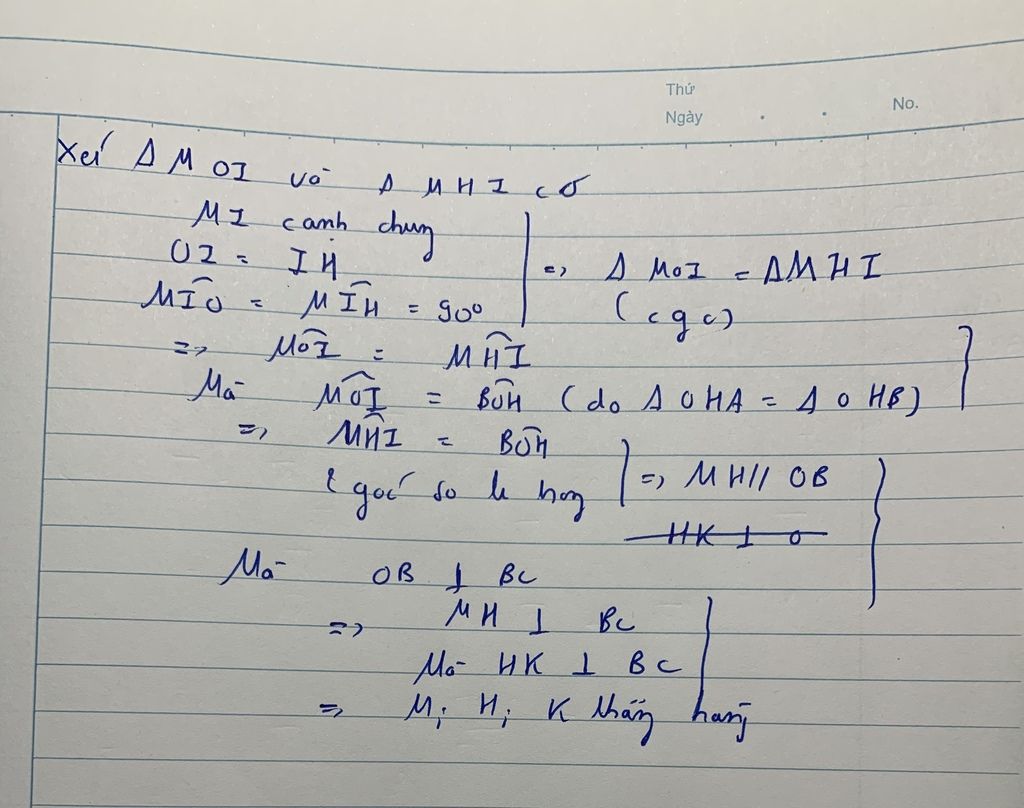 Thứ
Ngày . . No.
Xét Δ MOI và Δ MHI có
MI cạnh chung
OI = IH
MIO = MIH = 90° => Δ MOI = ΔMHI
(cgc)
=> MOI = MHI
Mà MOI = BOH (do Δ OHA = Δ OHB)
=> MHI = BOH
góc so le trong => MH // OB
HK ⊥ O
Mà OB ⊥ BC
=> MH ⊥ BC
Mà HK ⊥ BC
=> M; H; K thẳng hàng